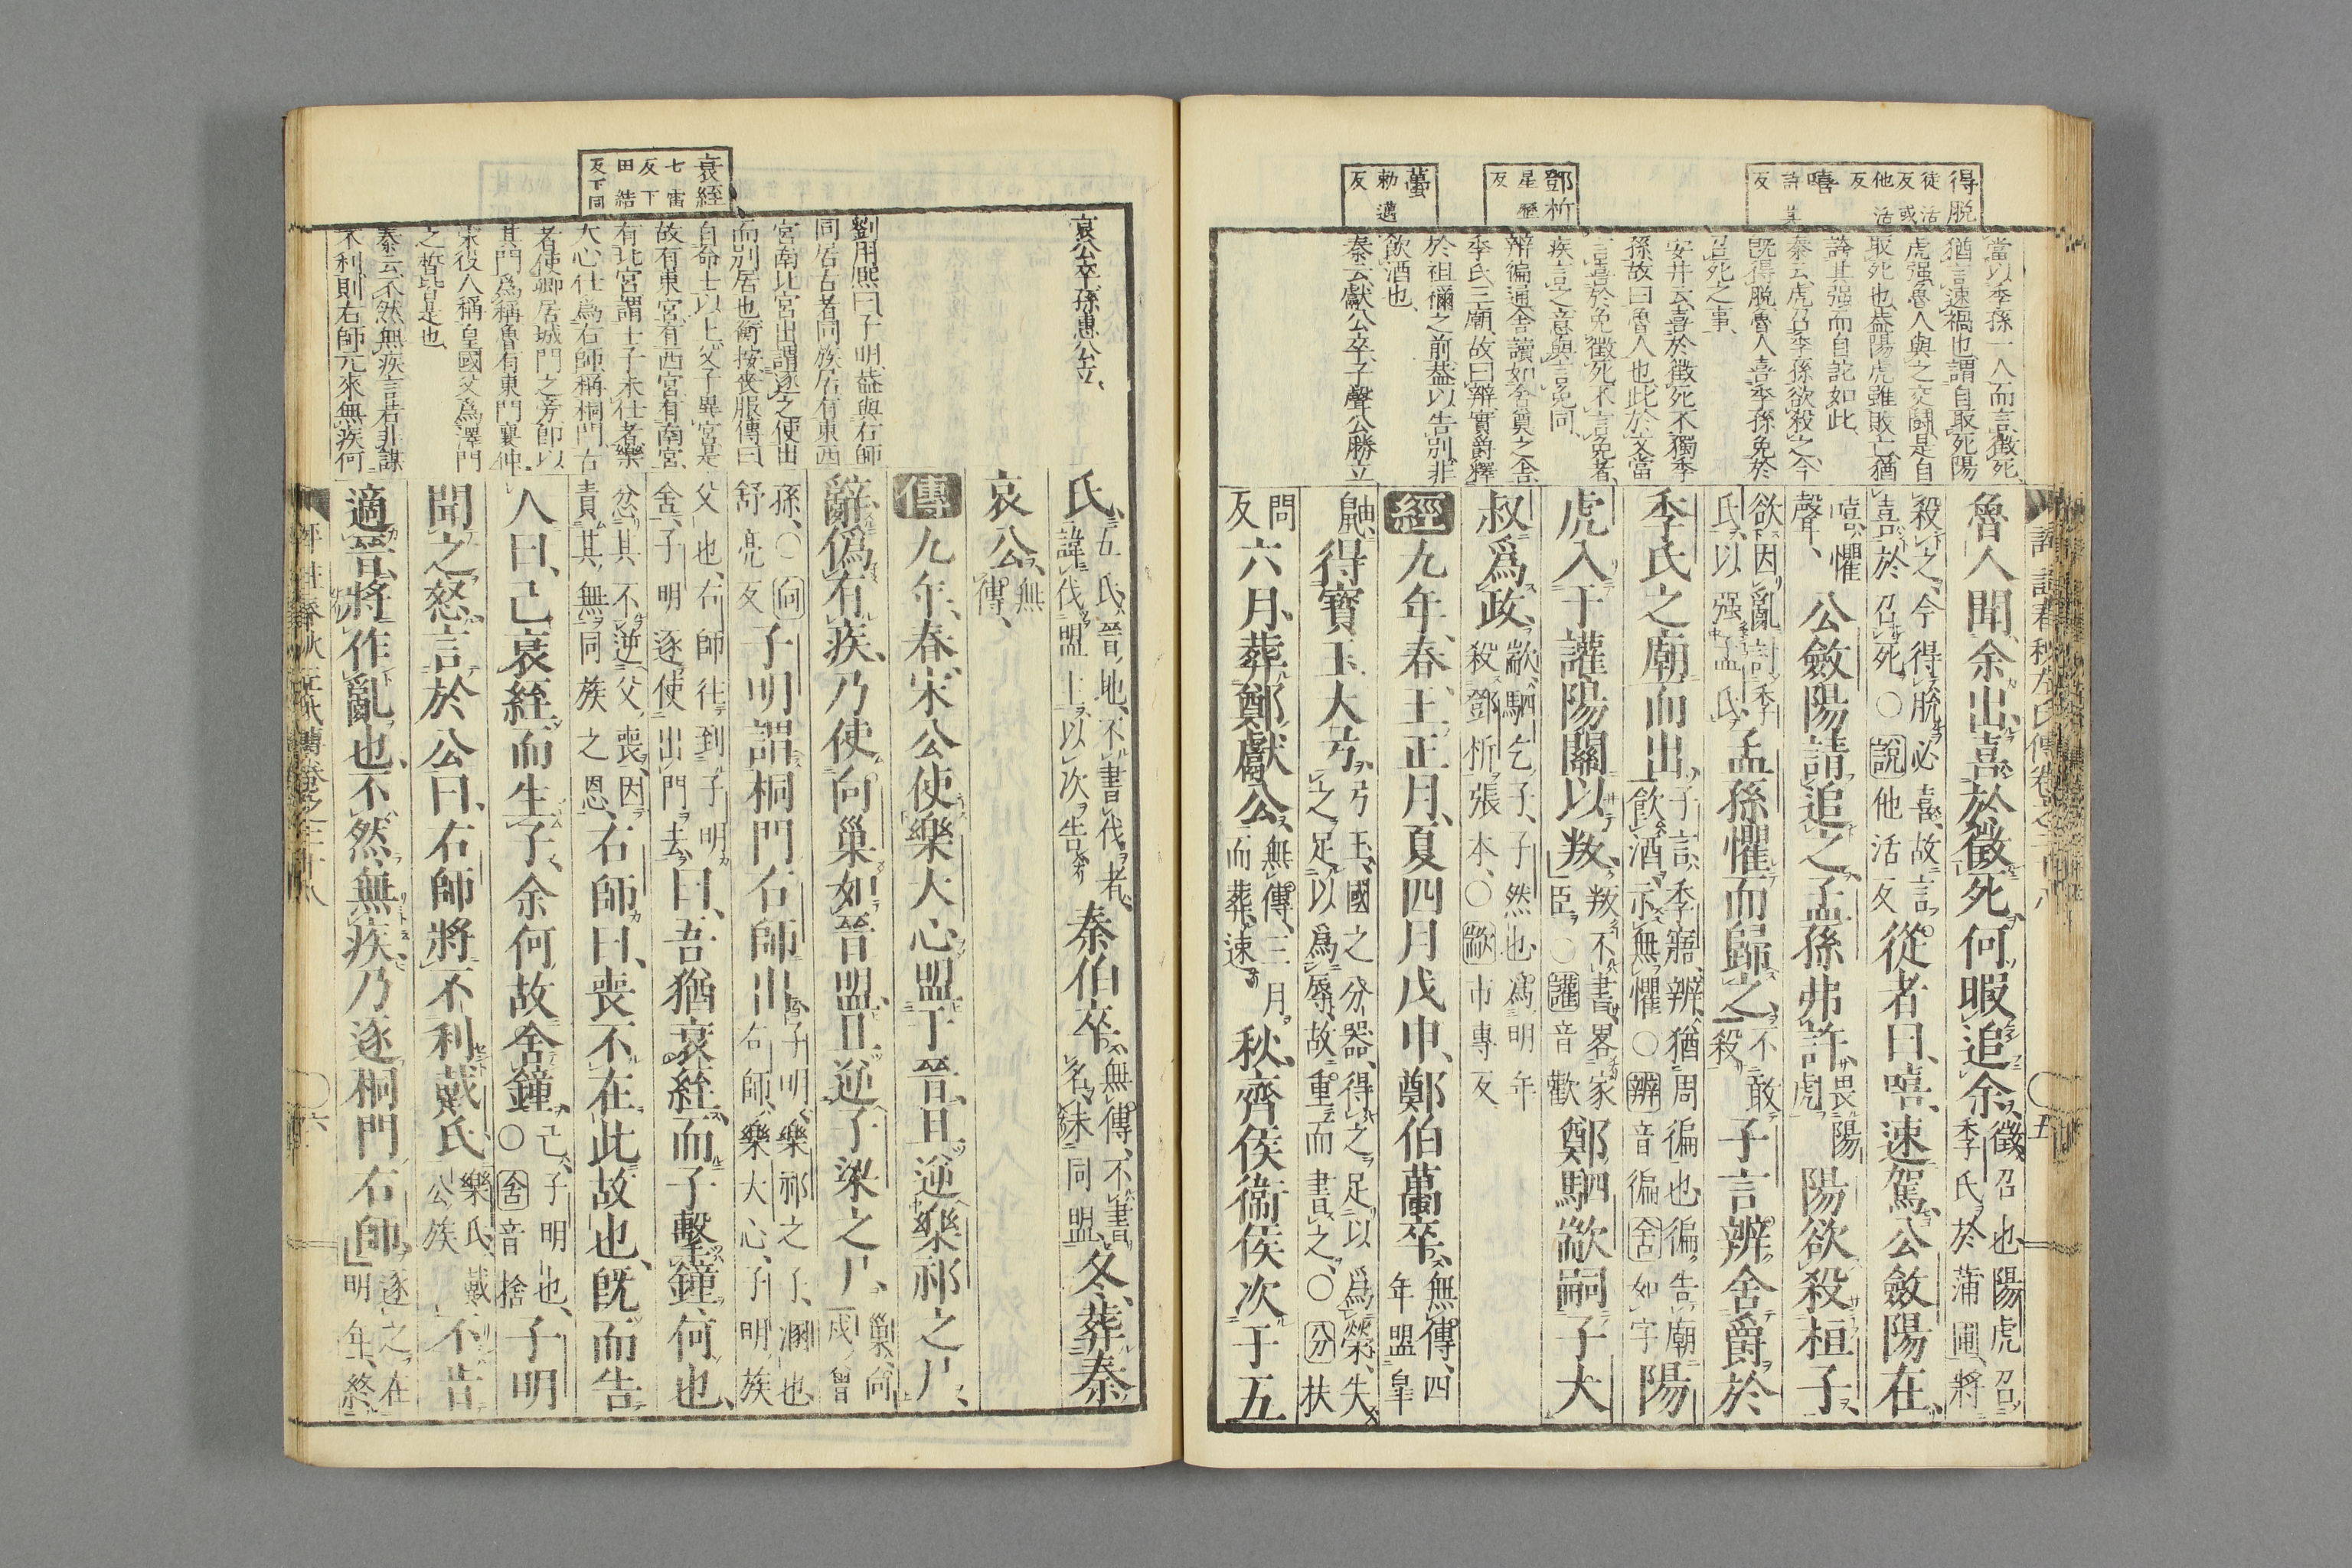 得脱
徒活
反或
他活
反
嘻
許其
反
鄧析
星歷
反
蠆
勅邁
反
當以季孫一人而言徴死、
猶言速禍也謂自取死陽
虎强魯人與之交鬪是自
取死也蓋陽虎雖敗亡猶
誇其强而自詑如此、
秦云虎召季孫欲殺之今
既得脱魯人喜季孫免於
召死之事、
安井云喜於徴死不獨季
孫故曰魯人也此於文當
言喜於免徴死不言免者、
疾言之意與言免同、
辨徧通舍讀如舍奠之舍
季氏三廟故曰辨實爵釋
於祖禰之前蓋以告別非
飲酒也、
秦云獻公卒子聲公勝立
魯人聞余出、喜於徴死、何暇追余、徴召也陽虎召
季氏於蒲圃將
殺之、今得脱必喜、故言
喜於召死○説他活反從者曰、嘻、速駕、公斂陽在、
嘻懼
聲、公斂陽請追之、孟孫弗許、畏陽
虎陽欲殺桓子、
欲因亂討季
氏以强孟氏孟孫懼而歸之、不敢
殺子言辨舍爵於
季氏之廟而出、子言、季寤、辨、猶周徧也徧告廟
飮酒、示無懼○辨音徧舍如字陽
虎入于讙陽關以叛、叛不書畧家
臣○讙音歡鄭駟歂嗣子大
叔爲政、歂駟乞子、子然也爲明年
殺鄧析張本、○歂市專反
經九年、春、王正月、夏四月戊申、鄭伯蠆卒、無傳、四
年盟皐
鼬、得寶玉大弓、弓玉、國之分器、得之足以爲榮、失
之足以爲辱、故重而書之、○分扶
問
反六月、葬鄭獻公、無傳、三月
而葬速秋、齊侯衞侯次于五
五
衰絰
七雷
反下
田結
反下同
哀公卒孫惠公立、
劉用熙曰子明蓋與右師
同居古者同族居有東西
宮南北宮出謂逐之使出
而別居也衡按喪服傳曰
自命士以上父子異宮是
故有東宮有西宮有南宮、
有北宮謂士子未仕者樂
大心仕爲右師稱桐門右
者使卿居城門之旁即以
其門爲稱魯有東門襄仲
宋役人稱皇國父爲澤門
之晳皆是也、
秦云不然無疾言若非謀
不利則右師元來無疾何
氏、五氏、晉地、不書伐者、
諱伐盟主以次告秦伯卒、無傳、不書
名、未同盟、冬、葬秦
哀公、無
傳、
傳九年、春、宋公使樂大心盟于晉、且逆樂祁之尸、
辭、僞有疾、乃使向巢如晉盟、且逆子梁之尸、巢、向
戌、曾
孫、○向
舒亮反子明謂桐門右師出、子明、樂祁之子、溷也、
右師、樂大心、子明族
父也、右師往到子明
舍、子明逐使出門去曰、吾猶衰絰、而子擊鐘、何也、
忿其不逆父喪、因
責其無同族之恩、右師曰、喪不在此故也、旣而告
人曰、己衰絰而生子、余何故舍鐘、己、子明也、
○舍音捨子明
聞之怒、言於公曰、右師將不利戴氏、樂氏、戴
公族不肯
適晉、將作亂也、不然無疾、乃逐桐門右師、逐之在
明年、終
六